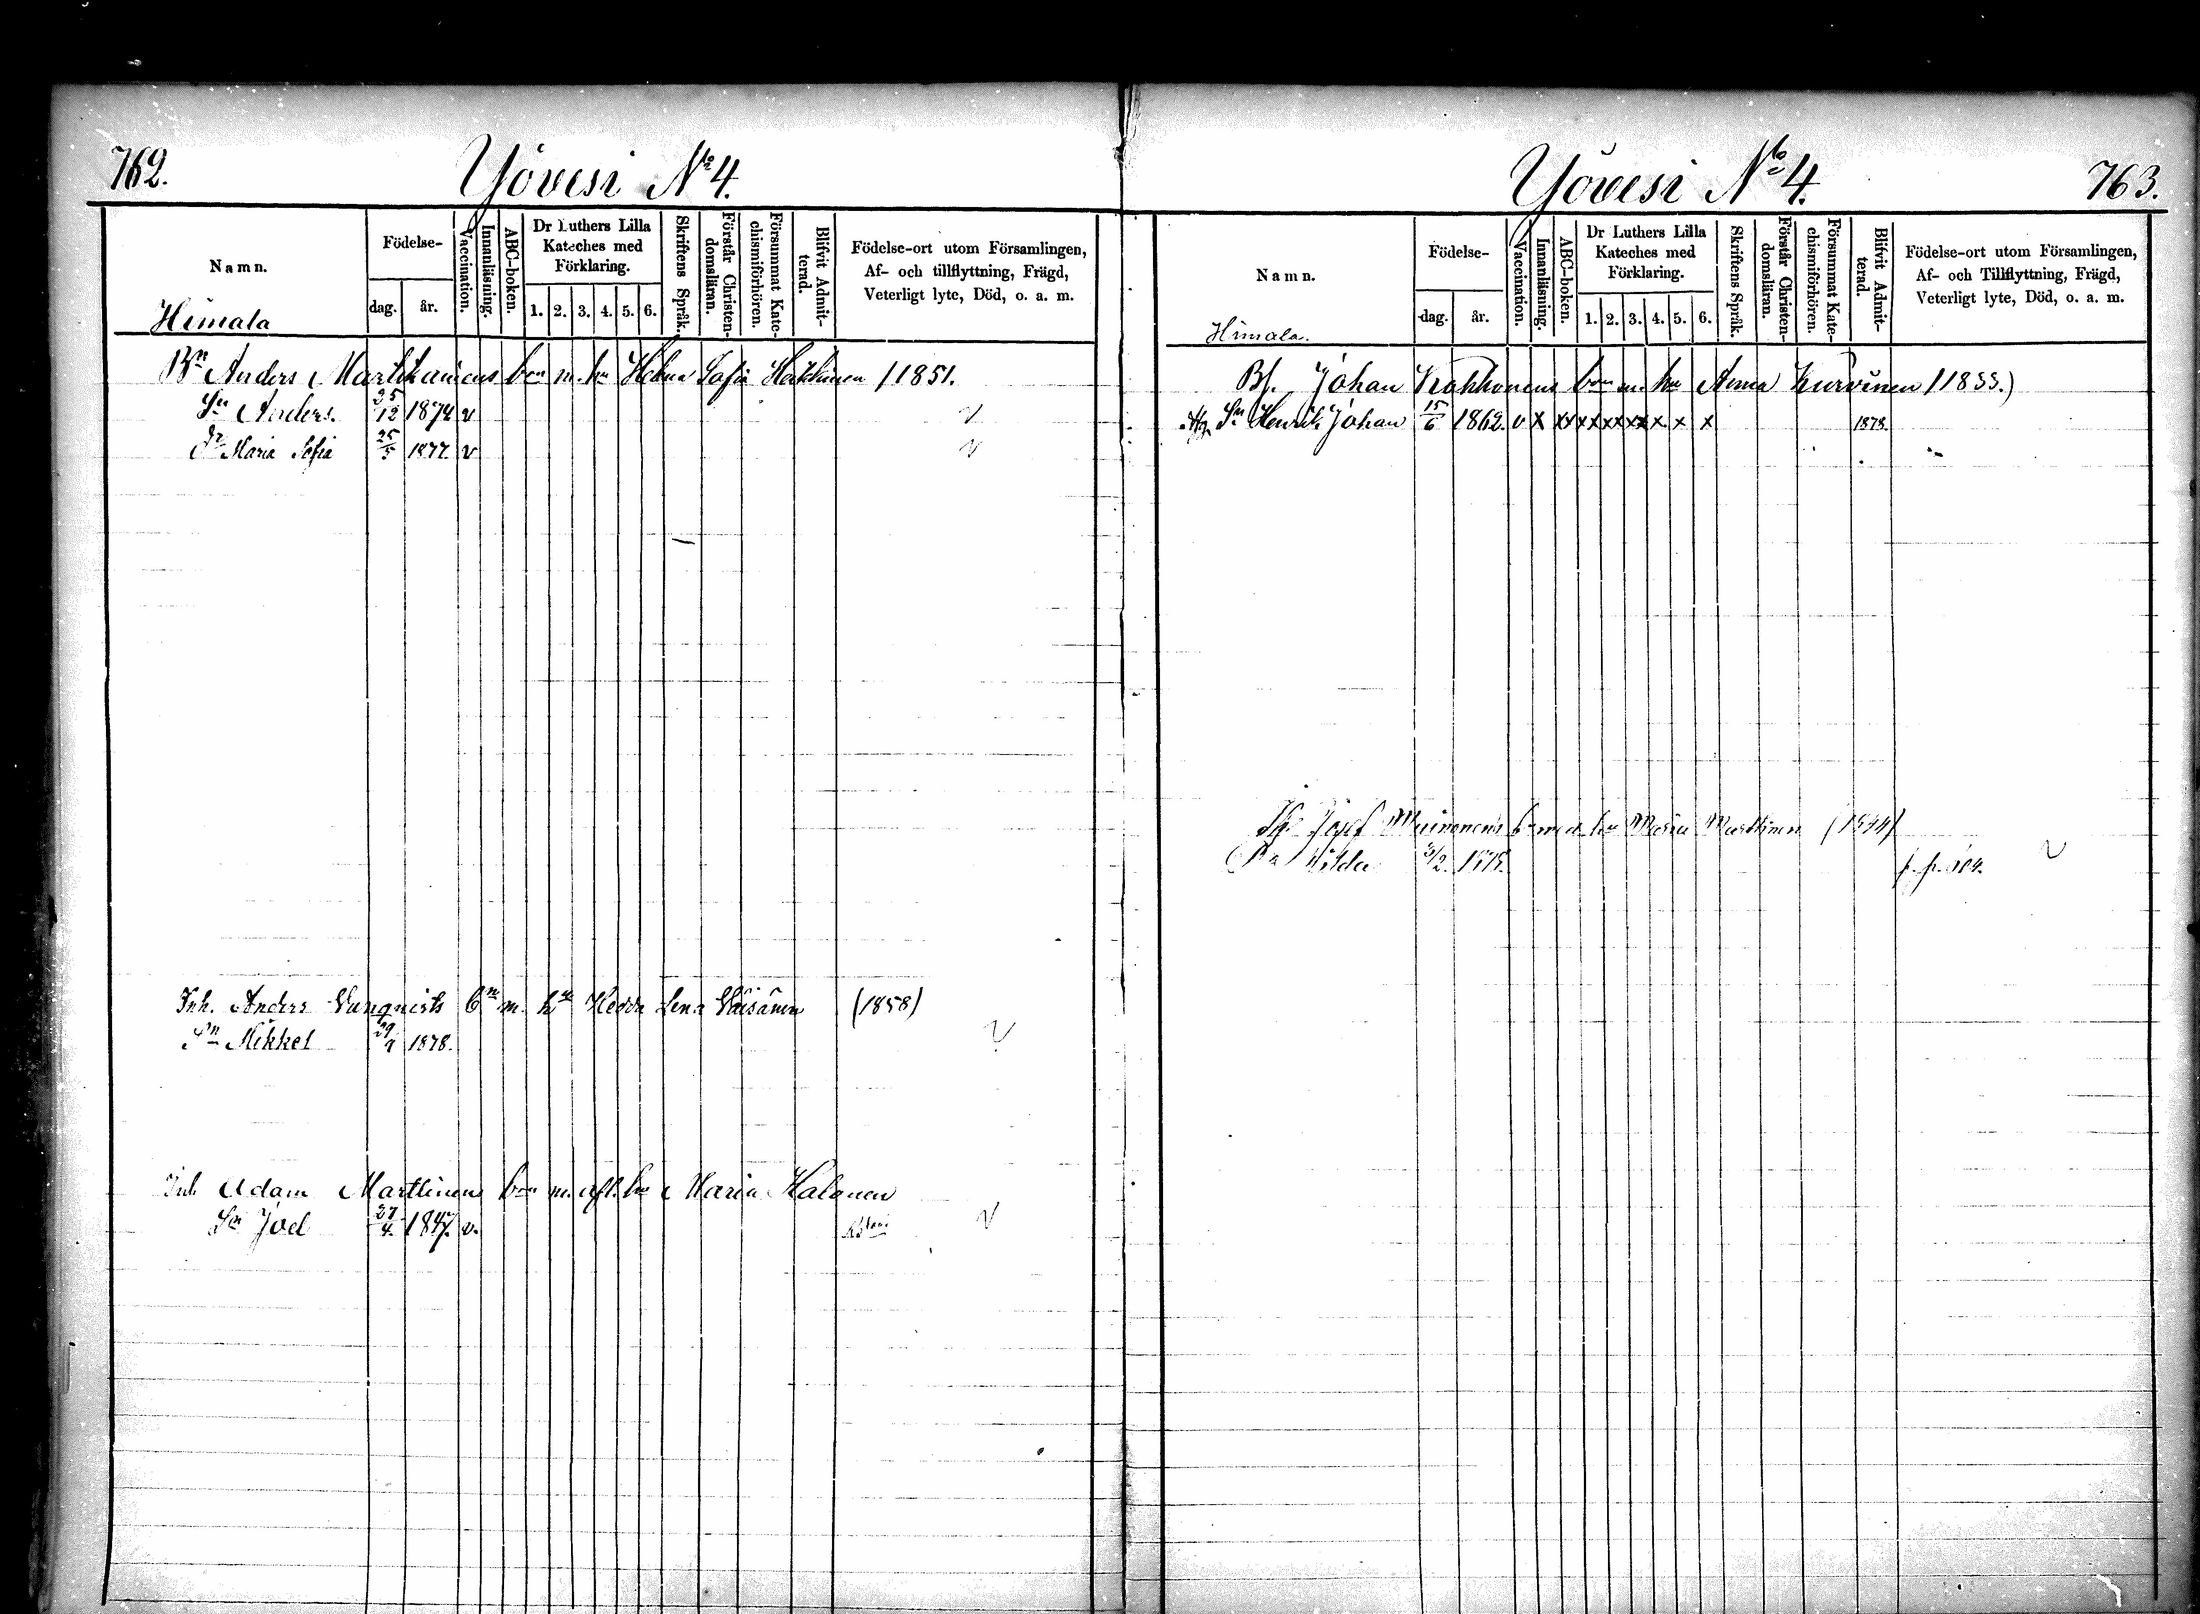 762.
Yövesi No 4.
Namn.
Födelse-
dag.
år.
Vaccination.
Innanläsning.
ABC-boken.
Dr Luthers Lilla
Kateches med
Förklaring.
1. 2. 3. 4. 5. 6.
Skriftens Språk.
Förstår Christen-
domsläran.
Försummat Kate-
chismiförhören.
Blifvit Admit-
terad.
Födelse-ort utom Församlingen,
Af- och tillflyttning, Frägd,
Veterligt lyte, Död, o. a. m.
Himala
Anders bn m. hu Helena Sofia Häkkinen (1851.
Sn Anders. 25/12 1874 v v
Dr Maria Sofia 25/5 1877 v v
Inh. Anders bn m. hu Hedda Lena Väisänen (1858)
Sn Mikkel 29/9 1878. v
Inh Adam Marttinens bn m. afl. hu Maria Halonen
Sn Joel 27/4 1847. v. v
Yövesi No 4.
763.
Namn.
Födelse-
dag.
år.
Vaccination.
Innanläsning.
ABC-boken.
Dr Luthers Lilla
Kateches med
Förklaring.
1. 2. 3. 4. 5. 6.
Skriftens Språk.
Förstår Christen-
domsläran.
Försummat Kate-
chismiförhören.
Blifvit Admit-
terad.
Födelse-ort utom Församlingen,
Af- och Tillflyttning, Frägd,
Veterligt lyte, Död, o. a. m.
Himala.
Bf. Johan bn m. hu Anna Kurvinen (1855.)
Sn Henrik Johan 15/6 1862. v x xx xx xx xx x x x 1878.
Josef Muinonens bn med hu Maria Marttinen (1844)
Hilda v